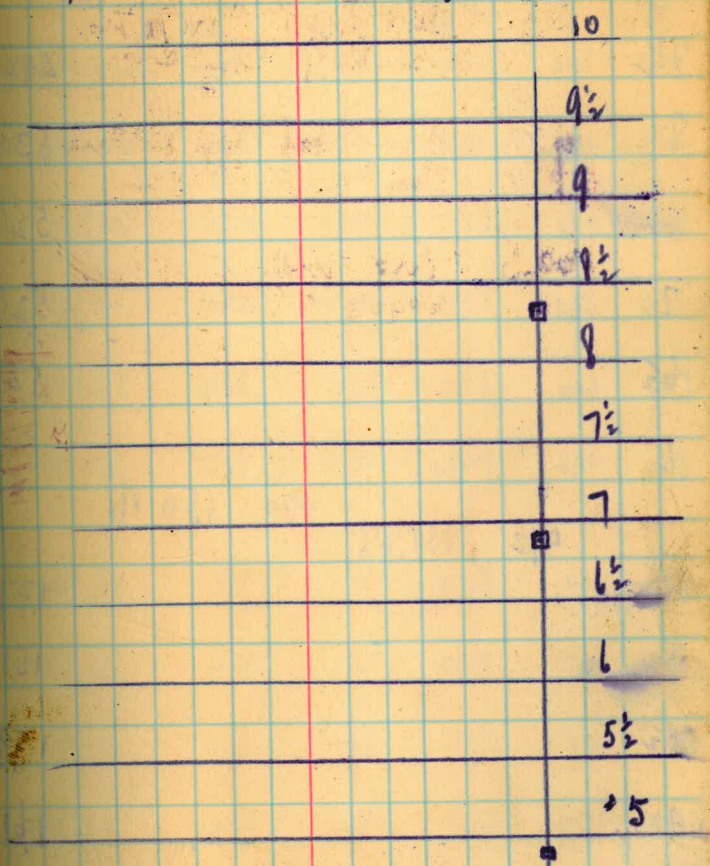 10
9½
9
8½
8
7½
7
6½
6
5½
5